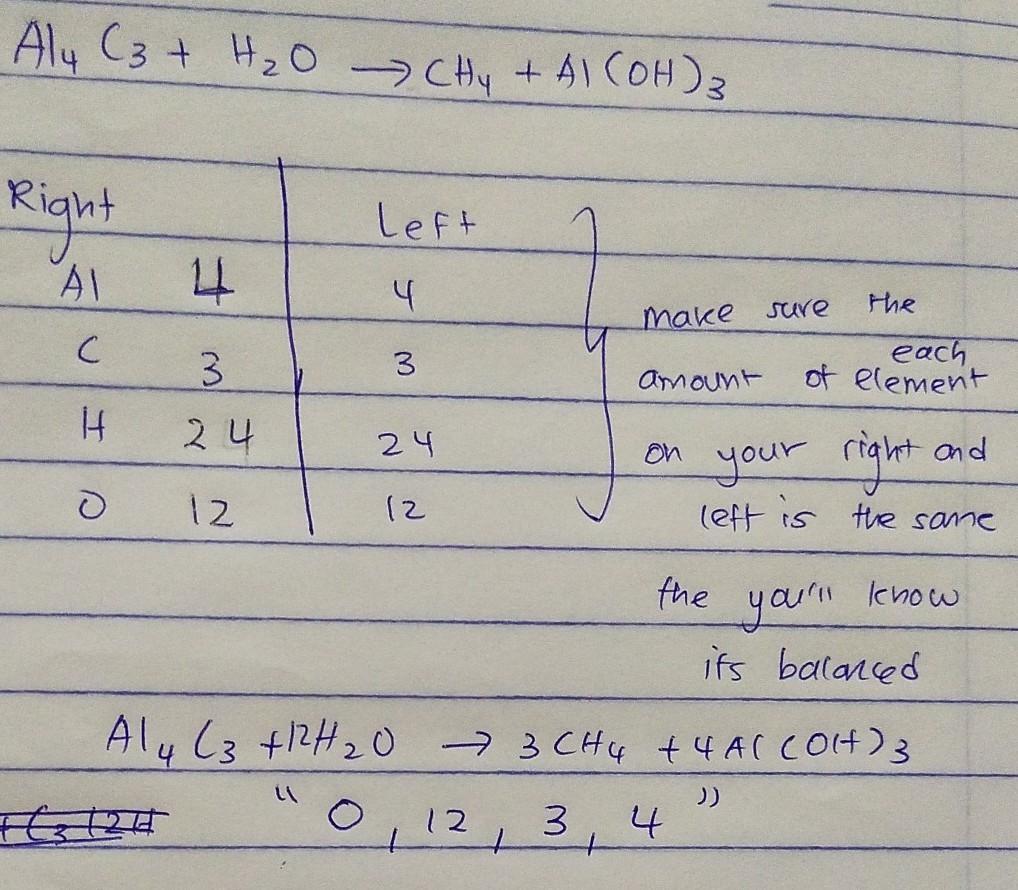 Al₄ C₃ + H₂O → CH₄ + Al(OH)₃
Right Left
Al 4 4
C 3 3
H 24 24
O 12 12
make sure the
amount of each element
on your right and
left is the same
the you'll know
its balanced
Al₄ C₃ + 12H₂O → 3 CH₄ + 4 Al(OH)₃
" 0, 12, 3, 4 "